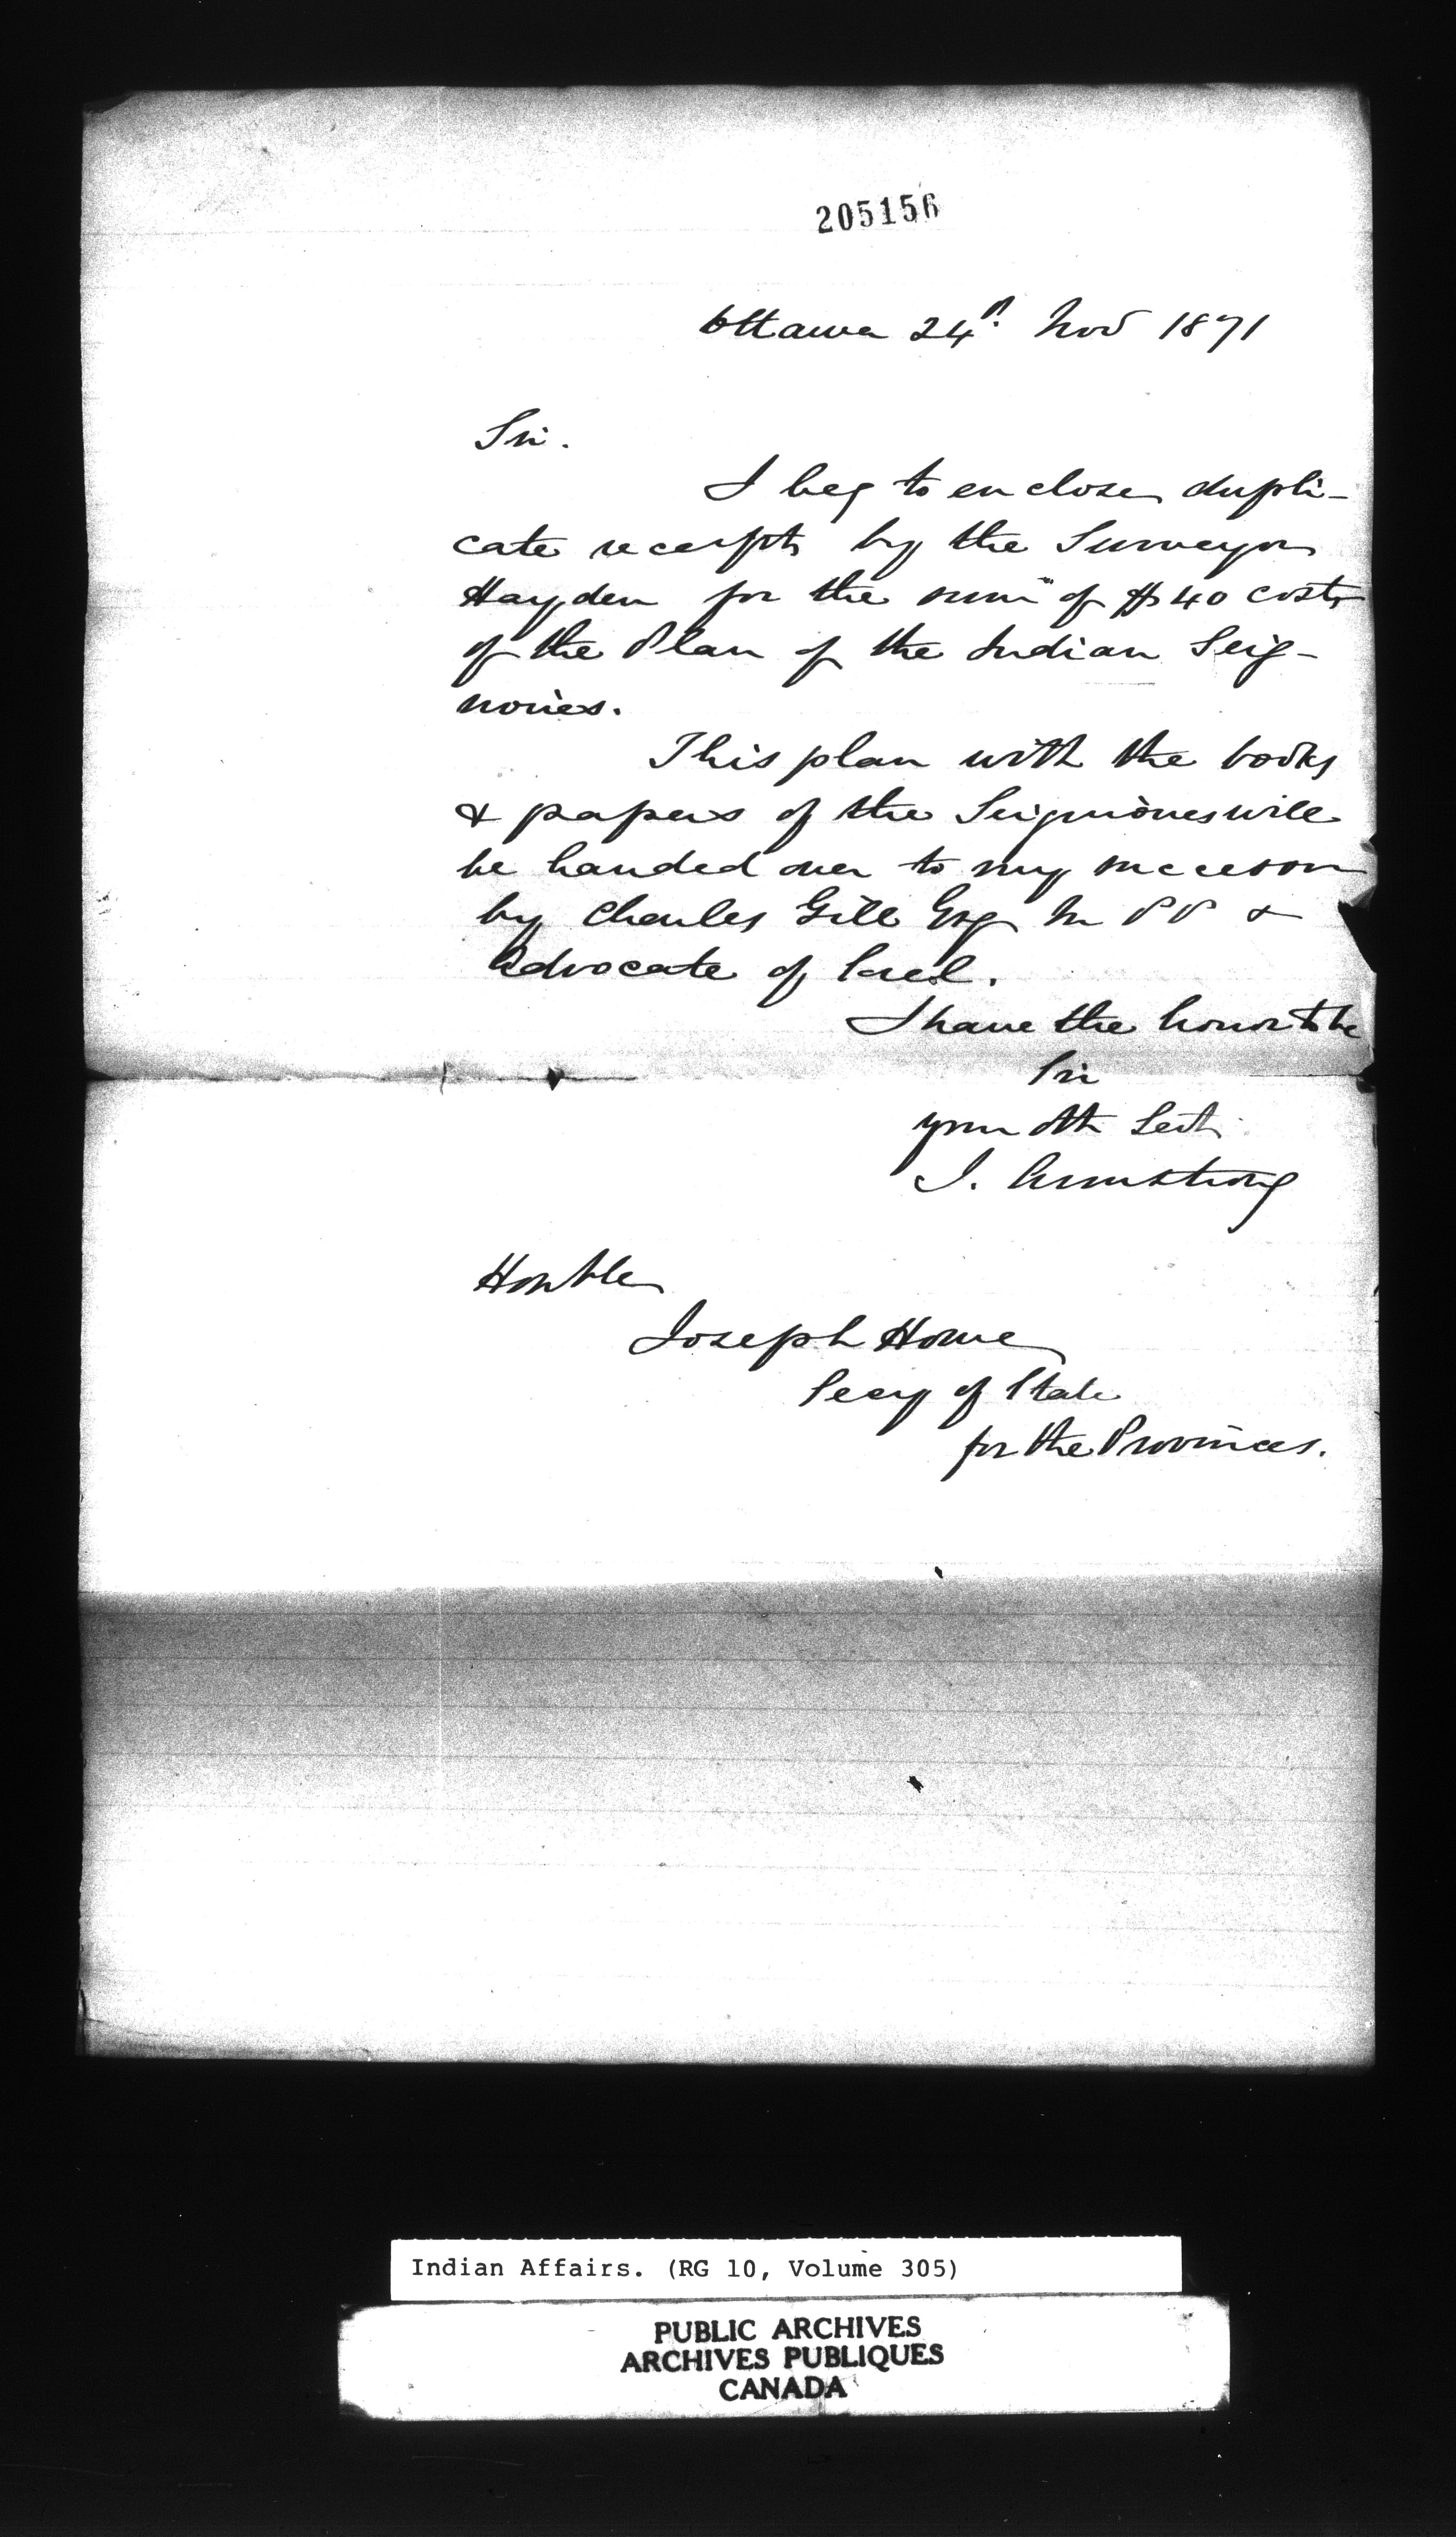 205156
Ottawa 24th Nov 1871
Sir.
I beg to enclose dupli-
cate receipts by the Surveyor
Hayden for the sum of $40 costs
of the Plan of the Indian Seig-
nories.
This plan with the books
& papers of the Seigniories will
be handed over to my successor
by Charles Gill Esq M P P &
Advocate of Sorel.
I have the honor to be
Sir
your Obt Sevt
J. Armstrong
Honble
Joseph Howe
Secy of State
for the Provinces.
Indian Affairs. (RG 10, Volume 305)
PUBLIC ARCHIVES
ARCHIVES PUBLIQUES
CANADA